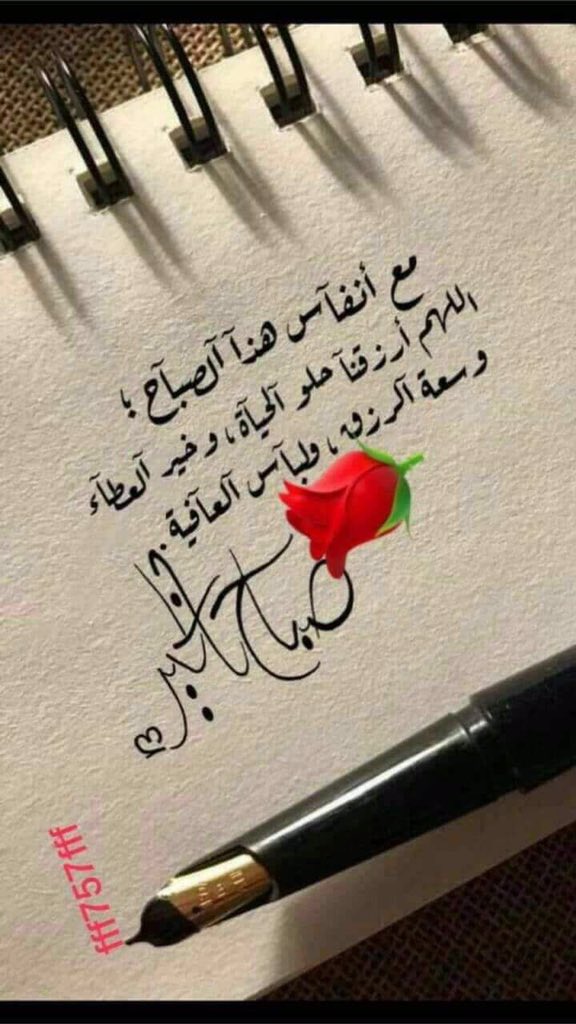 مع أنفآس هذآ آلصبآح ؛
اللهم أرزقنآ حلو آلحيآة ، و خير آلعطآء
و سعة آلرزق ، ولبآس آلعآفية
صباح الخير
fff757fff